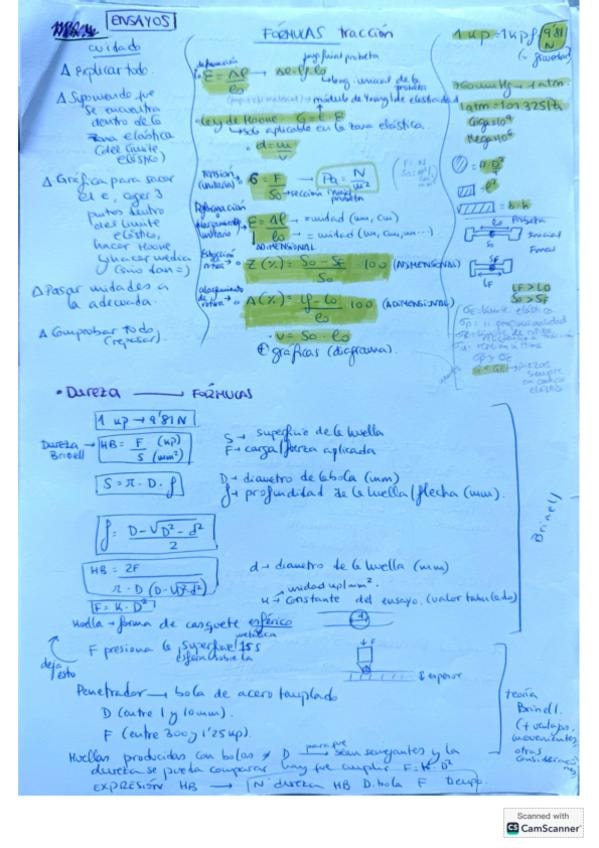 ENSAYOS
cuidado
Δ Explicar todo.
Δ Suponiendo que
se encuentra
dentro de la
zona elástica
(del límite
elástico)
Δ Gráfica para sacar
el ε, coger 3
puntos dentro
del límite
elástico,
hacer Hooke
y hacer media
Δ Pasar unidades a
la adecuada.
Δ Comprobar todo
(repasar).
FÓRMULAS tracción
ε = Δl / l0
módulo de Young/de elasticidad
Ley de Hooke
solo aplicable en la zona elástica.
d = m / v
Tensión (unitaria) σ = F / S0 → sección inicial probeta
Pa = N / m²
ε = Δl / l0 = unidad (mm, cm)
= unidad (mm, cm, mm...)
ADIMENSIONAL
Z (%) = S0 - SF / S0 100 (ADIMENSIONAL)
A (%) = lF - l0 / l0 100 (ADIMENSIONAL)
V = S0 · l0
⊕ gráficas (diagrama).
1 kp = 1 kpf 9'81 N
(~ gravedad)
760 mmHg → 1 atm
1 atm = 101.325 Pa
Giga = 10⁹
Mega = 10⁶
l²
b · h
Probeta
Inicial
S0
Final
SF
LF
LF > L0
S0 > SF
σE = límite elástico
• Dureza → FÓRMULAS
1 kp → 9'81 N
Dureza Brinell → HB = F (kp) / S (mm²)
S → superficie de la huella
F → carga/fuerza aplicada
S = π · D · f
D → diámetro de la bola (mm)
f → profundidad de la huella/flecha (mm).
f = D - √D² - d² / 2
HB = 2F / π · D (D - √D² - d²)
d → diámetro de la huella (mm)
unidad kp/mm².
K → constante del ensayo. (valor tabulado)
F = K · D²
Huella → forma de casquete esférico
F presiona la
metálica
superficie
15 s
deja esto
Espesor
Brinell
Penetrador → bola de acero templado
D (entre 1 y 10mm).
F (entre 3000 y 1'25 kp).
Huellas producidas con bolas ≠ D para que sean semejantes y la
dureza se pueda comparar hay que cumplir F = K · D²
EXPRESIÓN HB → Nº dureza HB D. bola F Tiempo.
teoría
Brinell.
(+ ventajas,
inconvenientes,
otras
consideraciones)
Scanned with
CS CamScanner